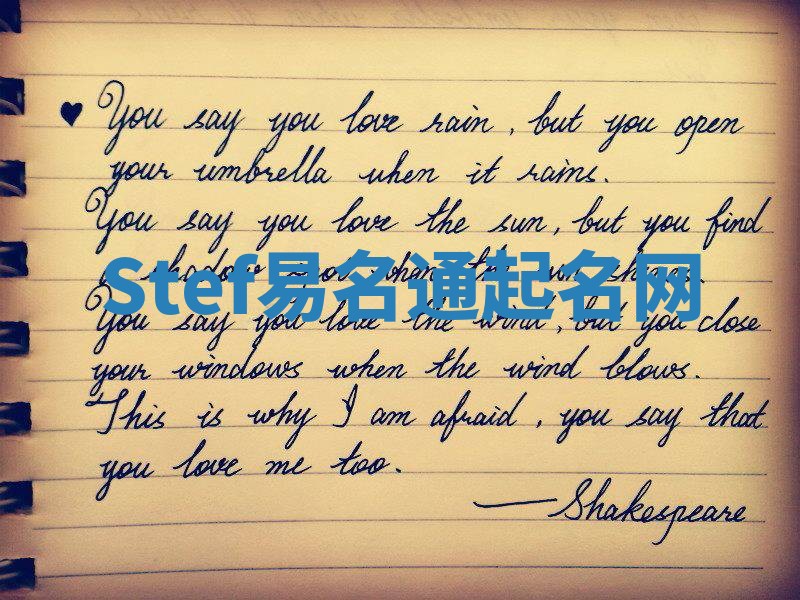 ♥ You say you love rain, but you open
your umbrella when it rains.
You say you love the sun, but you find
a shadow spot when the sun shines.
Stef易名通起名网
You say you love the wind, but you close
your windows when the wind blows.
This is why I am afraid, you say that
you love me too.
—Shakespeare